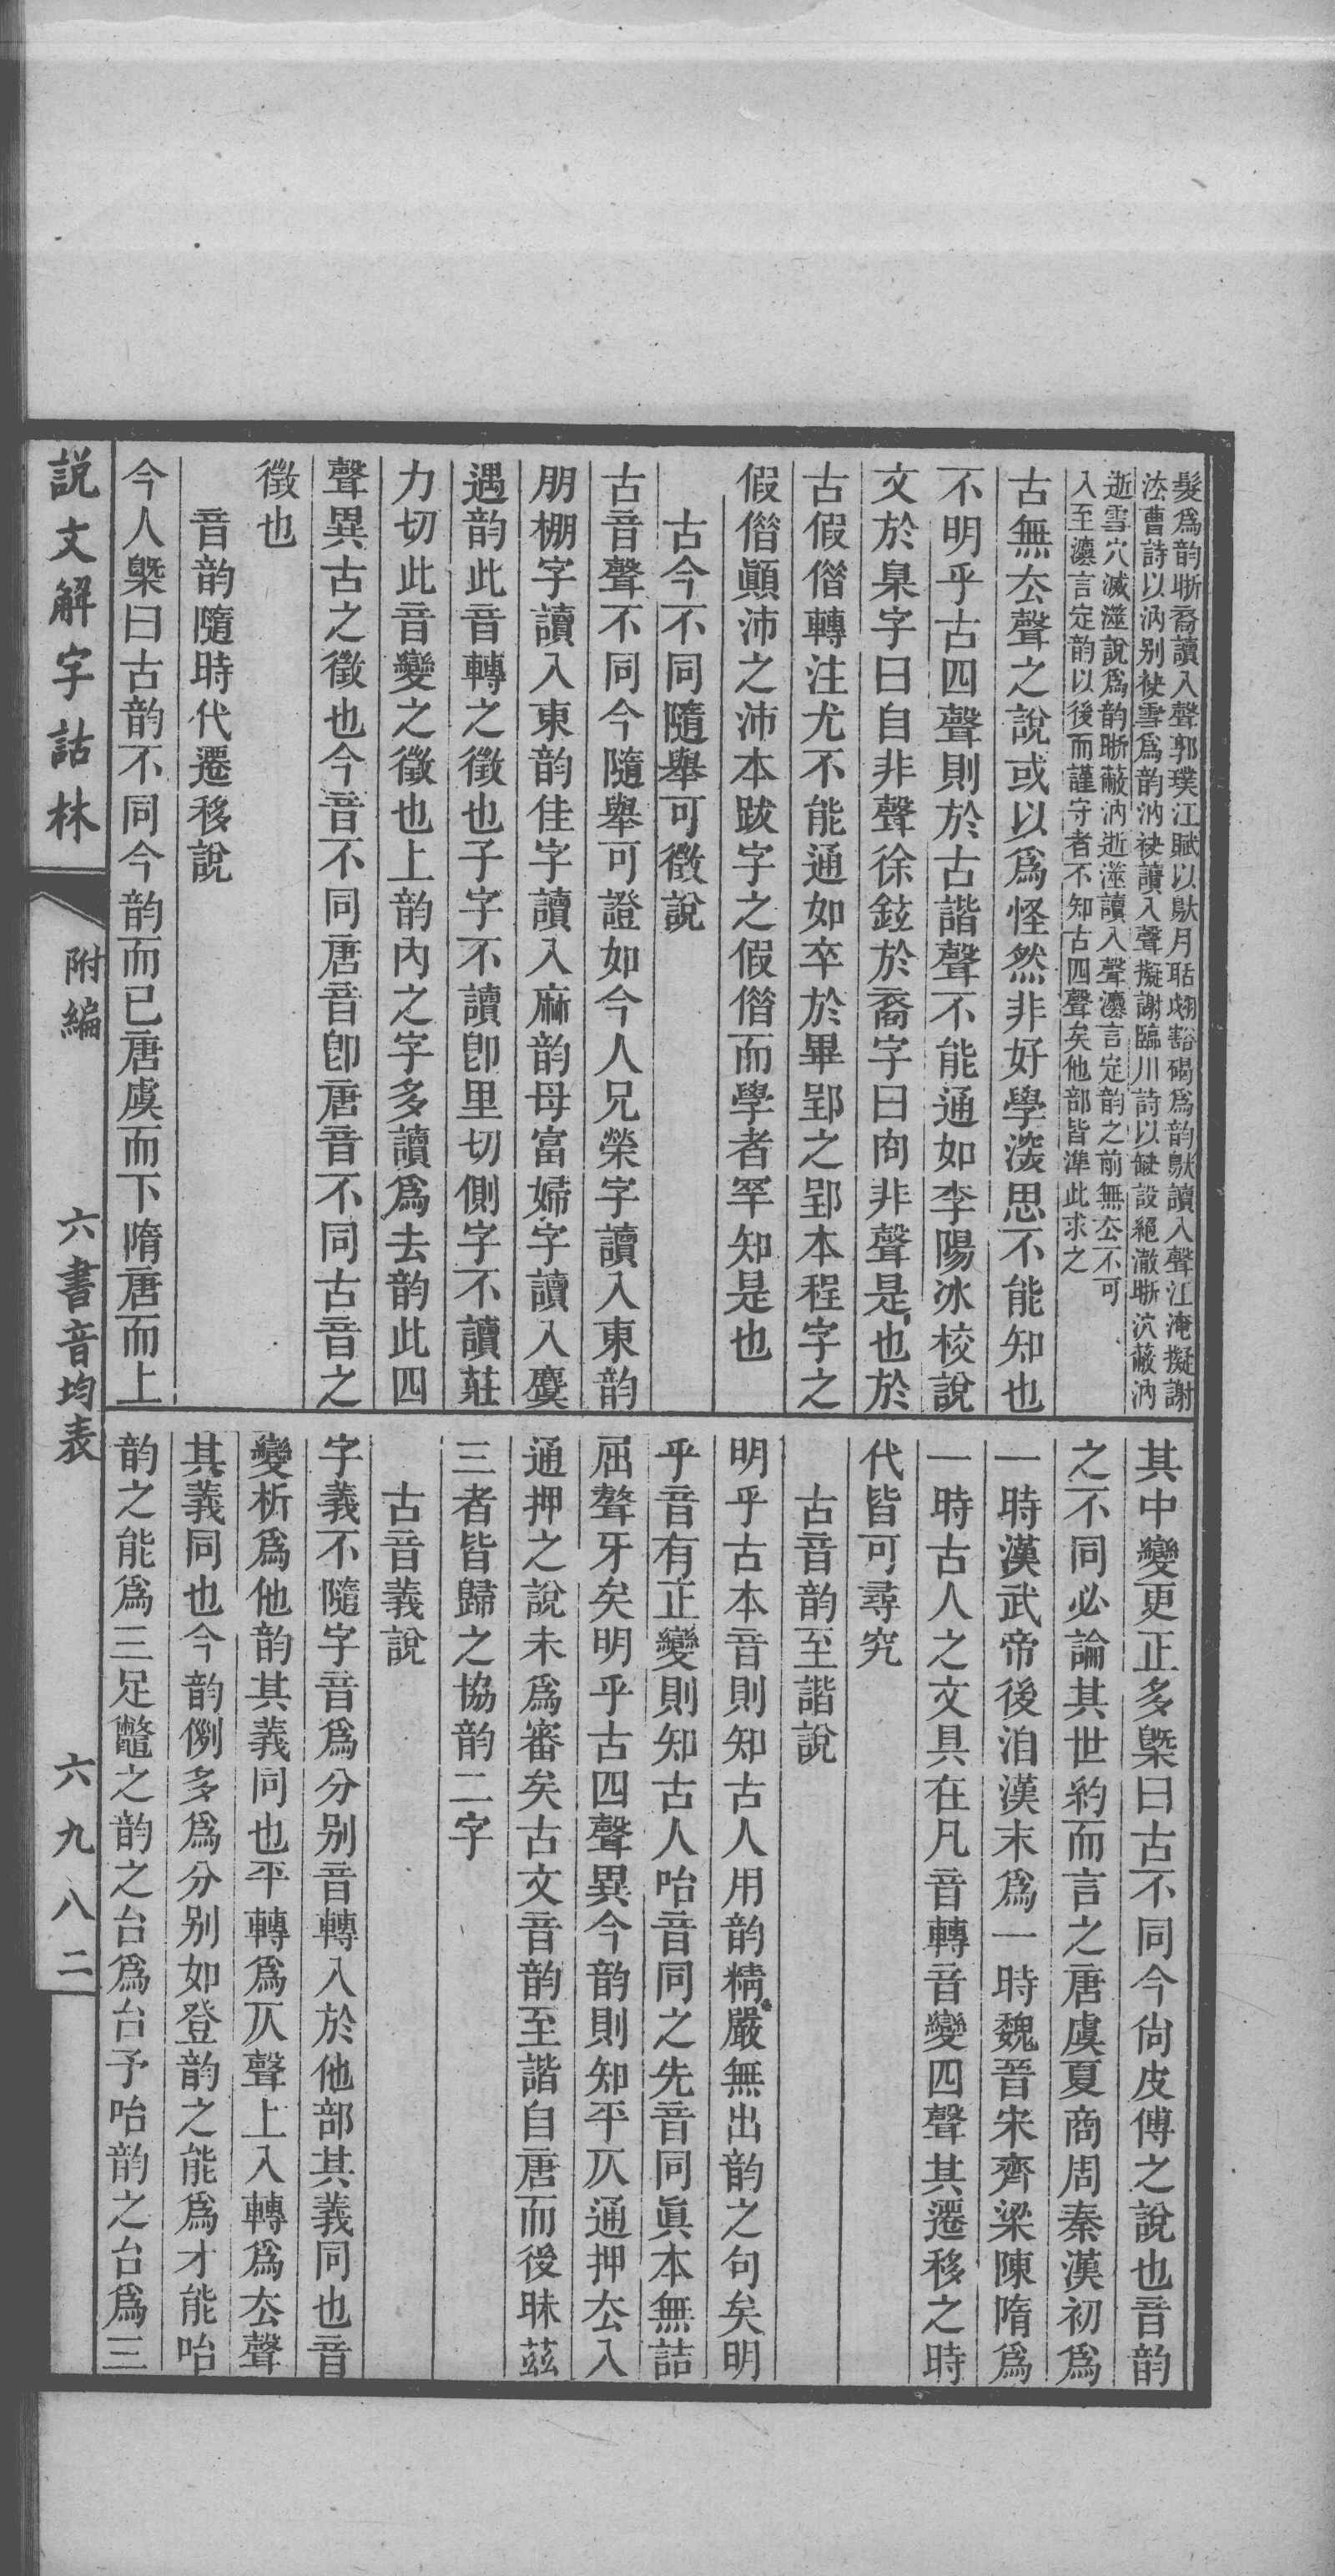 髮爲韵晣裔讀入聲郭璞江賦以月聒豁碣爲韵讀入聲江淹擬謝
法曹詩以汭别袂雪爲韵汭袂讀入聲擬謝臨川詩以缺設絕澈晣泬蔽汭
逝雪穴滅澨說爲韵晣蔽汭逝澨讀入聲灋言定韵之前無厺不可
入至灋言定韵以後而謹守者不知古四聲矣他部皆準此求之
古無厺聲之說或以爲怪然非好學深思不能知也
不明乎古四聲則於古諧聲不能通如李陽冰校說
文於臬字曰自非聲徐鉉於裔字曰㕯非聲是也於
古假借轉注尤不能通如卒於畢郢之郢本程字之
假借顚沛之沛本跋字之假借而學者罕知是也
古今不同隨舉可徵說
古音聲不同今隨舉可證如今人兄榮字讀入東韵
朋棚字讀入東韵佳字讀入麻韵母富婦字讀入麌
遇韵此音轉之徵也子字不讀卽里切側字不讀莊
力切此音變之徵也上韵內之字多讀爲去韵此四
聲異古之徵也今音不同唐音卽唐音不同古音之
徵也
音韵隨時代遷移說
今人槩曰古韵不同今韵而已唐虞而下隋唐而上
其中變更正多槩曰古不同今尙皮傅之說也音韵
之不同必論其世約而言之唐虞夏商周秦漢初爲
一時漢武帝後洎漢末爲一時魏晉宋齊梁陳隋爲
一時古人之文具在凡音轉音變四聲其遷移之時
代皆可尋究
古音韵至諧說
明乎古本音則知古人用韵精嚴無出韵之句矣明
乎音有正變則知古人咍音同之先音同眞本無詰
屈聲牙矣明乎古四聲異今韵則知平仄通押厺入
通押之說未爲審矣古文音韵至諧自唐而後昧茲
三者皆歸之協韵二字
古音義說
字義不隨字音爲分别音轉入於他部其義同也音
變析爲他韵其義同也平轉爲仄聲上入轉爲厺聲
其義同也今韵例多爲分别如登韵之能爲才能咍
韵之能爲三足鼈之韵之台爲台予咍韵之台爲三
説文解字詁林
附編
六書音均表
六九八二